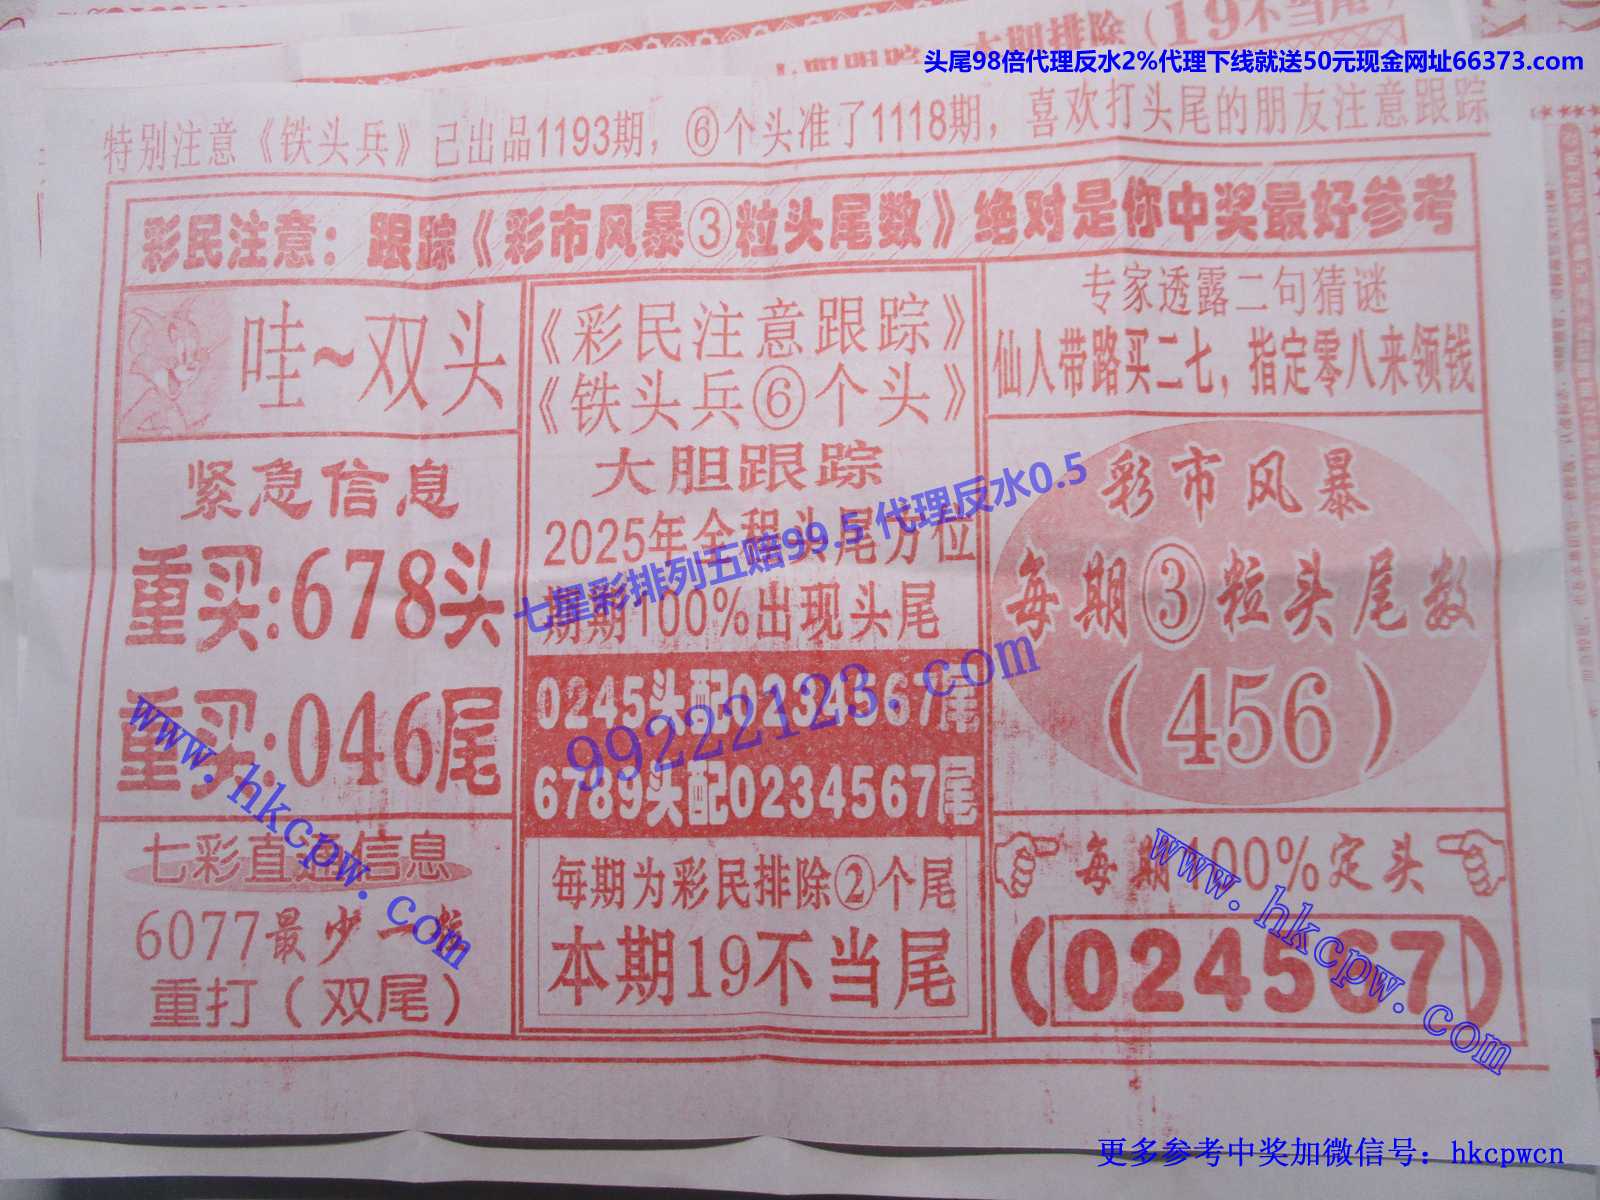 大期排除（19不当尾）
头尾98倍代理反水2%代理下线就送50元现金网址66373.com
特别注意《铁头兵》已出品1193期，⑥个头准了1118期，喜欢打头尾的朋友注意跟踪
彩民注意：跟踪《彩市风暴③粒头尾数》绝对是你中奖最好参考
哇~双头
紧急信息
重买:678头
重买:046尾
七彩直通信息
6077最少二
重打（双尾）
《彩民注意跟踪》
《铁头兵⑥个头》
大胆跟踪
2025年全程头尾夯位
期期100%出现头尾
0245头配0234567尾
6789头配0234567尾
每期为彩民排除②个尾
本期19不当尾
专家透露二句猜谜
仙人带路买二七，指定零八来领钱
彩市风暴
每期③粒头尾数
（456）
每期100%定头
（024567）
七星彩排列五赔99.5代理反水0.5
99222123.com
www.hkcpw.com
www.hkcpw.com
更多参考中奖加微信号：hkcpwcn